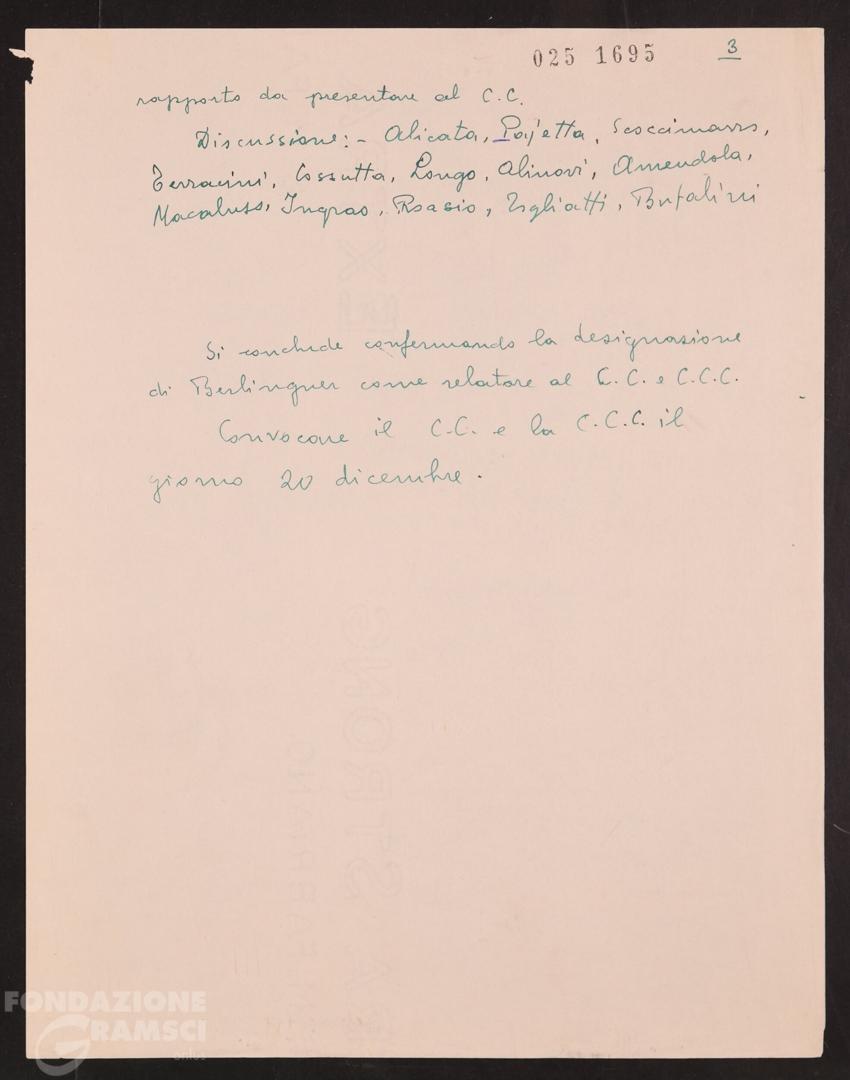 025 1695 3
rapporto da presentare al C.C.
Discussione: - Alicata, Pajetta, Scoccimarro,
Terracini, Cossutta, Longo, Alinovi, Amendola,
Macaluso, Ingrao, Roasio, Togliatti, Bufalini
Si conclude confermando la designazione
di Berlinguer come relatore al C.C. e C.C.C.
Convocare il C.C. e la C.C.C. il
giorno 20 dicembre.
FONDAZIONE
GRAMSCI
onlus